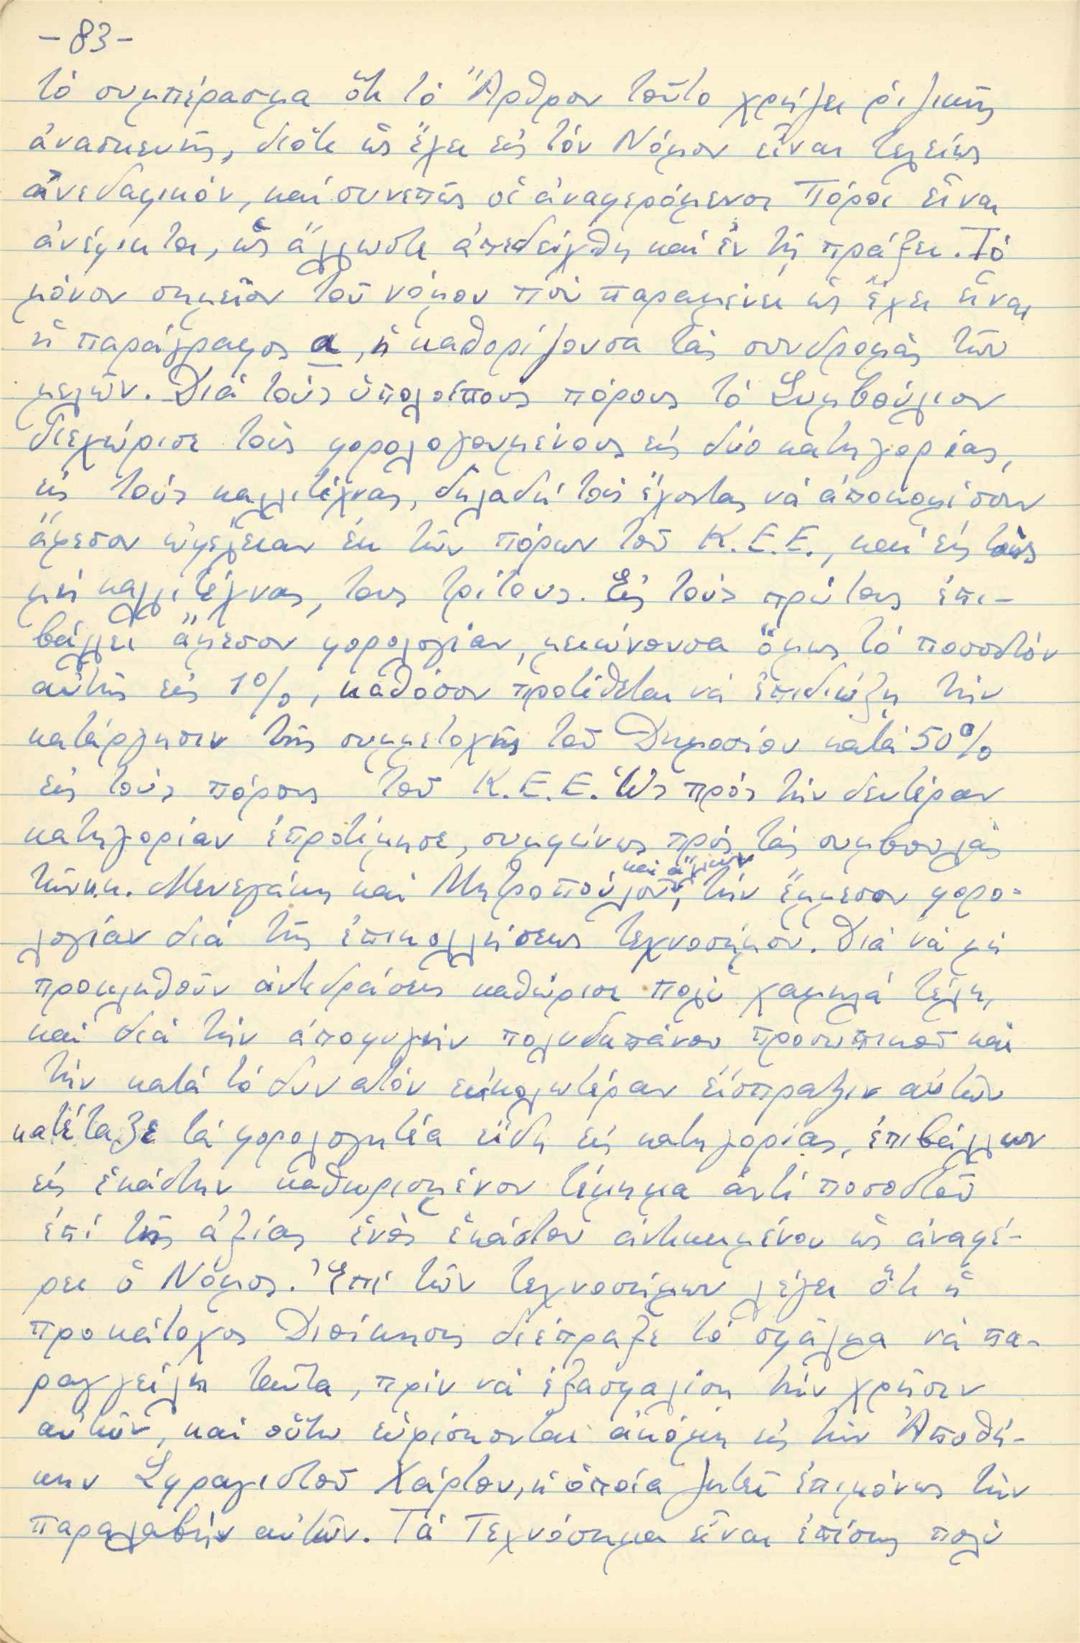 -83-
τό συμπέρασμα ὅτι τό Ἄρθρον τοῦτο χρήζει ριζικῆς
ἀνασκευῆς, διότι ὡς ἔχει εἰς τόν Νόμον εἶναι τελείως
ἀνεδαφικόν, καί συνεπῶς οἱ ἀναφερόμενοι Πόροι εἶναι
ἀνέφικτοι, ὡς ἄλλωστε ἀπεδείχθη καί ἐν τῇ πράξει. Τό
μόνον σημεῖον τοῦ νόμου πού παραμένει ὡς ἔχει εἶναι
ἡ παράγραφος α, ἡ καθορίζουσα τάς συνδρομάς τῶν
μελῶν. Διά τούς ὑπολοίπους πόρους τό Συμβούλιον
διεχώρισε τούς φορολογουμένους εἰς δύο κατηγορίας,
εἰς τούς καλλιτέχνας, δηλαδή τούς ἔχοντας νά ἀποκομίσουν
ἄμεσον ὠφέλειαν ἐκ τῶν πόρων τοῦ Κ.Ε.Ε., καί εἰς τούς
μή καλλιτέχνας, τους τρίτους. Εἰς τούς πρώτους ἐπι-
βάλλει ἄμεσον φορολογίαν, μειώνουσα ὅμως τό ποσοστόν
αὐτῆς εἰς 1%, καθόσον προτίθεται νά ἐπιδιώξῃ τήν
κατάργησιν τῆς συμμετοχῆς τοῦ Δημοσίου κατά 50%
εἰς τούς πόρους τοῦ Κ.Ε.Ε. Ὡς πρός τήν δευτέραν
κατηγορίαν ἐπροτίμησε, συμφώνως πρός τάς συμβουλάς
τῶν κ.κ. Μενεγάκη καί Μητροπούλου, καί ἄλλων, τήν ἔμμεσον φορο-
λογίαν διά τῆς ἐπικολλήσεως τεχνοσήμου. Διά νά μή
προκληθοῦν ἀντιδράσεις καθώρισε πολύ χαμηλά τέλη,
καί διά τήν ἀποφυγήν πολυδαπάνου προσωπικοῦ καί
τήν κατά τό δυνατόν εὐκολωτέραν εἴσπραξιν αὐτῶν
κατέταξε τά φορολογητέα εἴδη εἰς κατηγορίας, ἐπιβάλλων
εἰς ἑκάστην καθωρισμένον τίμημα ἀντί ποσοστοῦ
ἐπί τῆς ἀξίας ἑνός ἑκάστου ἀντικειμένου ὡς ἀναφέ-
ρει ὁ Νόμος. Ἐπί τῶν τεχνοσήμων λέγει ὅτι ἡ
προκάτοχος Διοίκησις διέπραξε τό σφάλμα νά πα-
ραγγείλῃ ταῦτα, πρίν νά ἐξασφαλίσῃ τήν χρῆσιν
αὐτῶν, καί οὕτω εὑρίσκονται ἀκόμη εἰς τήν Ἀποθή-
κην Σφραγιστοῦ Χάρτου, ἡ ὁποία ζητεῖ ἐπιμόνως τήν
παραλαβήν αὐτῶν. Τά Τεχνόσημα εἶναι ἐπίσης πολύ